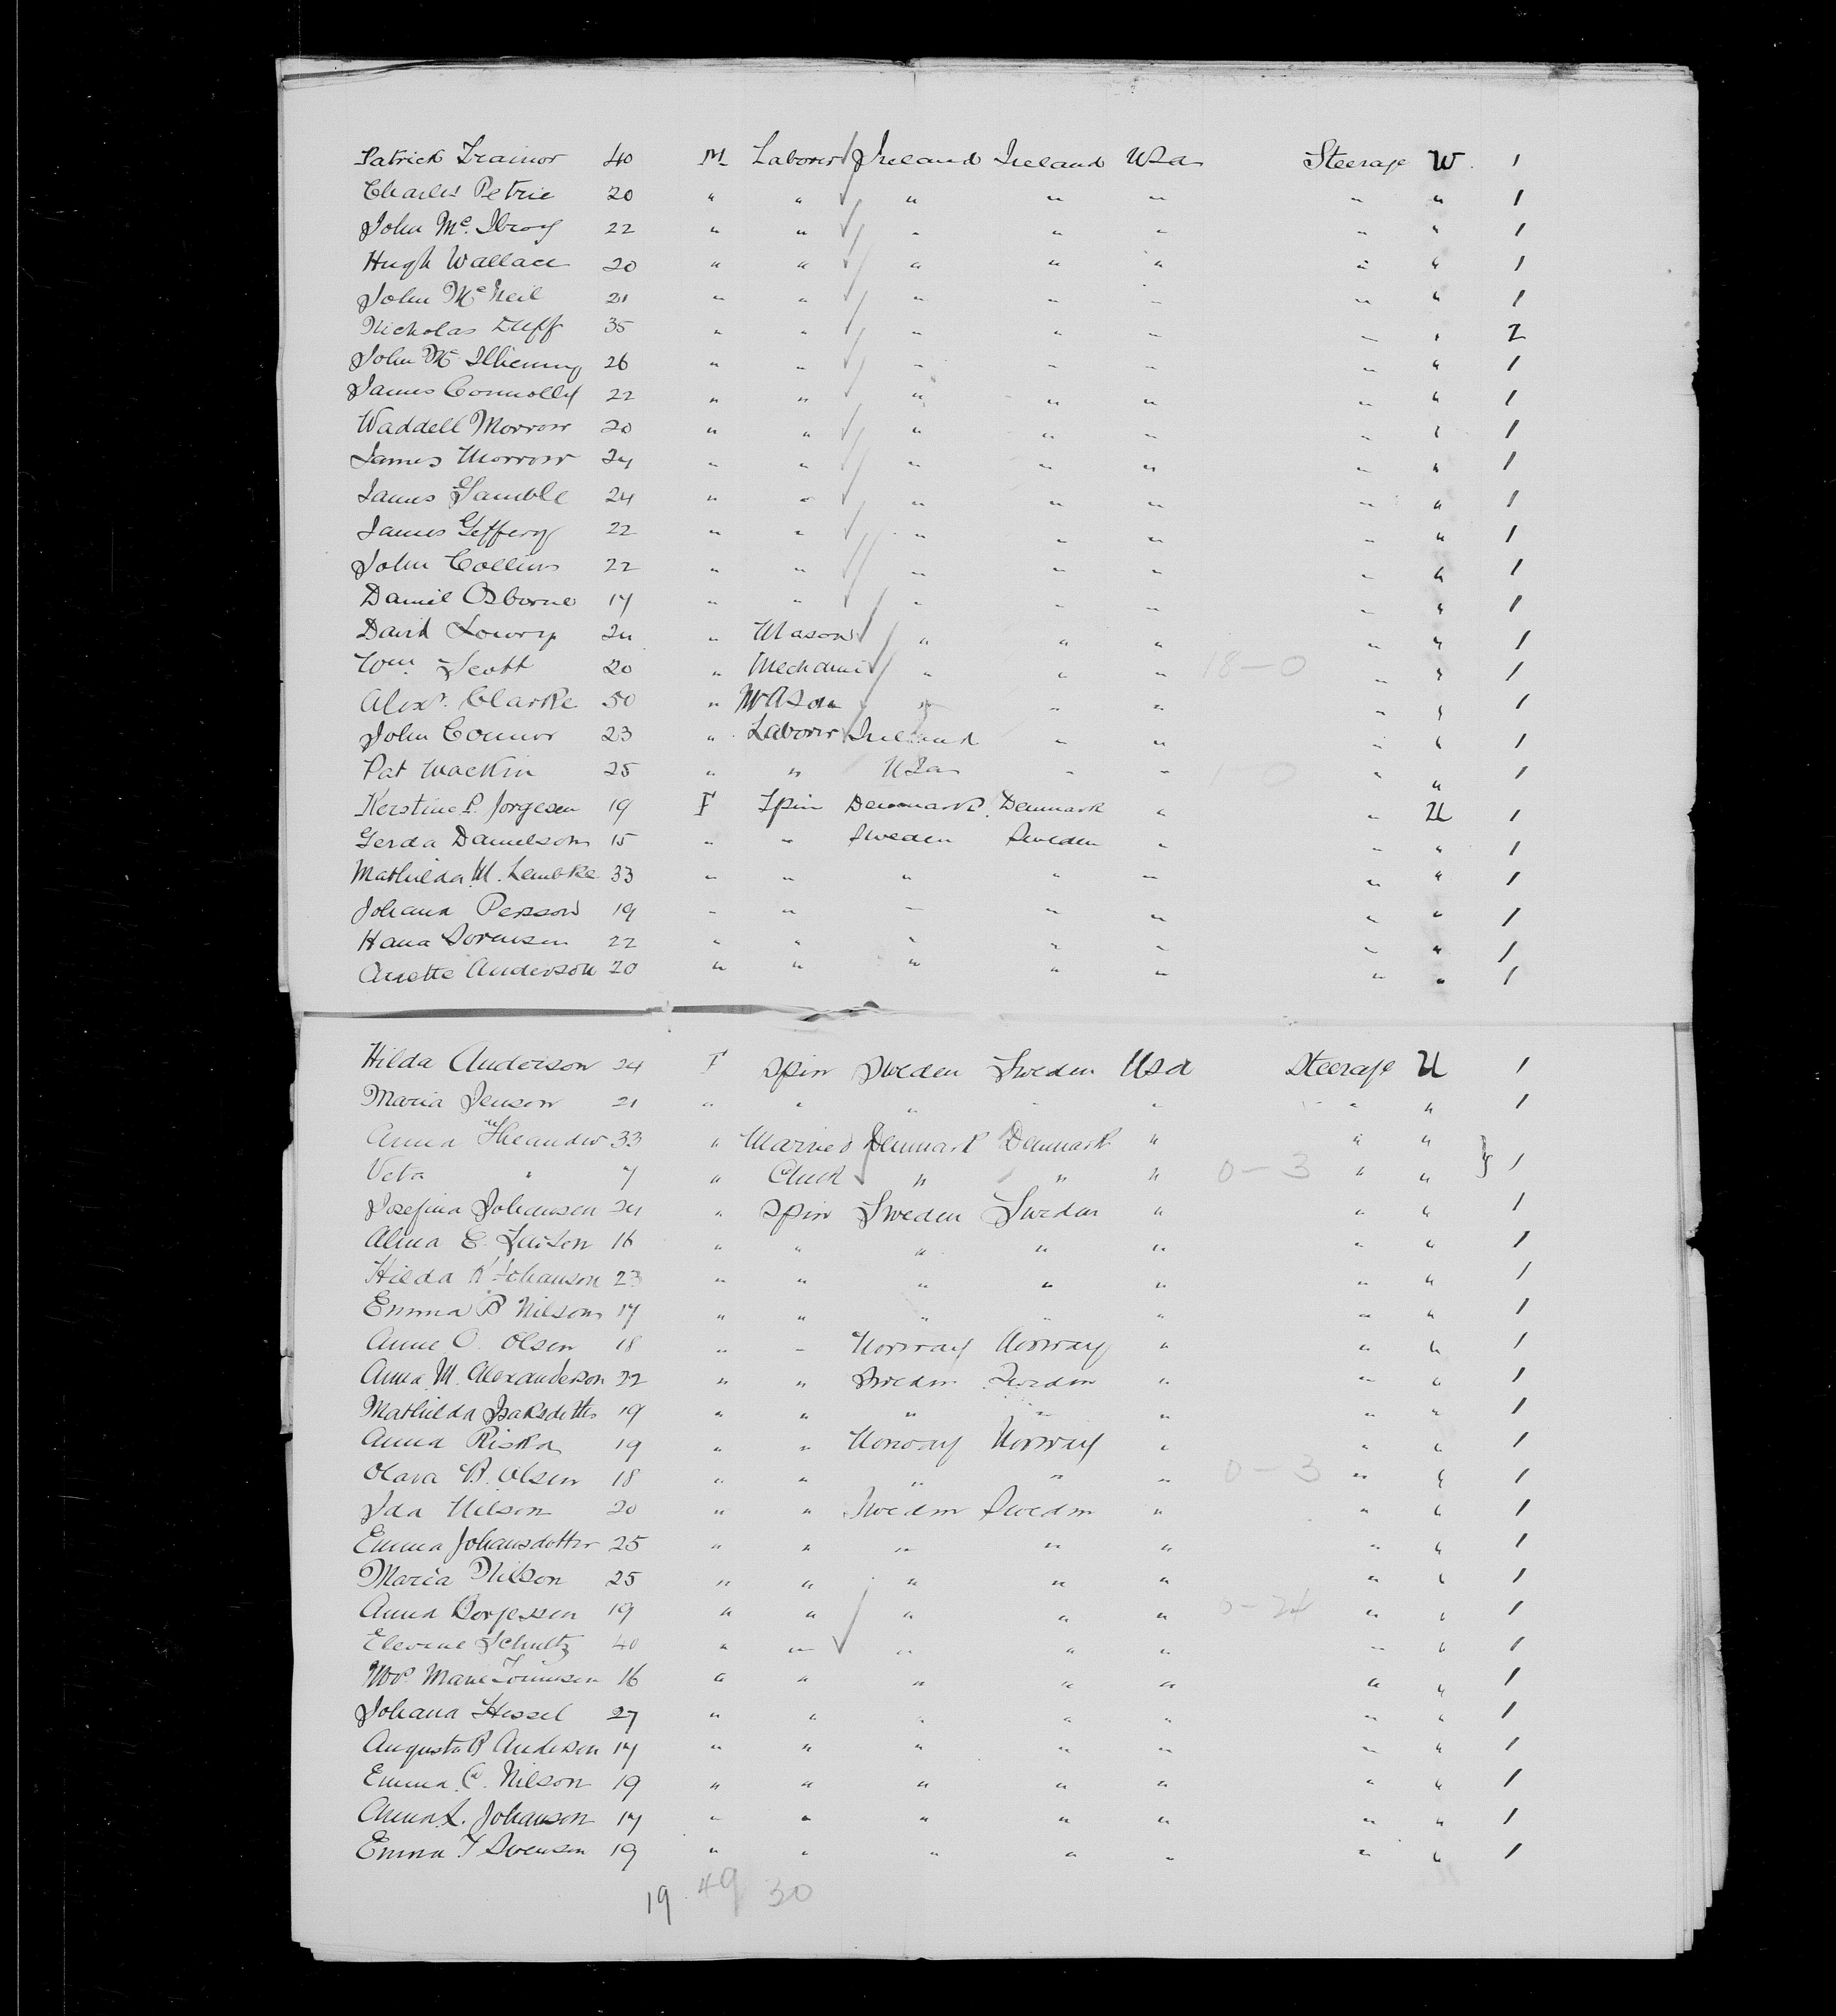 Patrick Trainor 40 M Laborer Ireland Ireland USa Steerage W. 1
Charles Petrie 20 " " " " " " " 1
John Mc. Ilroy 22 " " " " " " " 1
Hugh Wallace 20 " " " " " " " 1
John Mc Neil 21 " " " " " " " 1
Nicholas Duff 35 " " " " " " " 2
John Mc Ilhenny 26 " " " " " " " 1
James Connolly 22 " " " " " " " 1
Waddell Morrow 20 " " " " " " " 1
James Morrow 24 " " " " " " " 1
James Gamble 24 " " " " " " " 1
James Geffery 22 " " " " " " " 1
John Collins 22 " " " " " " " 1
Daniel Osborne 17 " " " " " " " 1
David Lowry 24 " Mason " " " " " 1
Wm. Scott 20 " Mechanic " " " 18-0 " " 1
Alexr. Clarke 50 " Mason " " " " " 1
John Connor 23 " Laborer Ireland " " " " 1
Pat Mackin 25 " " USa " " 1-0 " " 1
Kerstine P. Jorgesen 19 F Spin Denmark Denmark " " U 1
Gerda Danielson 15 " " Sweden Sweden " " " 1
Mathilda M. Lembke 33 " " " " " " " 1
Johana Persson 19 " " " " " " " 1
Hana Sorensen 22 " " " " " " " 1
Anette Anderson 20 " " " " " " " 1
Hilda Anderson 24 F Spin Sweden Sweden Usa Steerage U 1
Maria Jenson 21 " " " " " " " 1
Anna 33 " Married Denmark Denmark " " "
Veta " 7 " Child " " " 0-3 " " } 1
Josefina Johansen 24 " Spin Sweden Sweden " " " 1
Alma E. 16 " " " " " " " 1
Hilda K Johanson 23 " " " " " " " 1
Emma B Nilson 17 " " " " " " " 1
Anne O. Olsen 18 " " Norway Norway " " " 1
Anna M. Alexanderson 22 " " Sweden Sweden " " " 1
Mathilda Isaksdotter 19 " " " " " " " 1
Anna Riska 19 " " Norway Norway " " " 1
Olava B. Olsen 18 " " " " " 0-3 " " 1
Ida Nilson 20 " " Sweden Sweden " " " 1
Emma Johansdotter 25 " " " " " " " 1
Maria Nilson 25 " " " " " " " 1
Anna Borjesson 19 " " " " " 0-24 " " 1
Elevine Schultz 40 " " " " " " " 1
Marie 16 " " " " " " " 1
Johana Hessel 27 " " " " " " " 1
Augusta B Anderson 17 " " " " " " " 1
Emma C. Nilson 19 " " " " " " " 1
Anna L. Johanson 17 " " " " " " " 1
Emma T Svenson 19 " " " " " " " 1
19 49 30